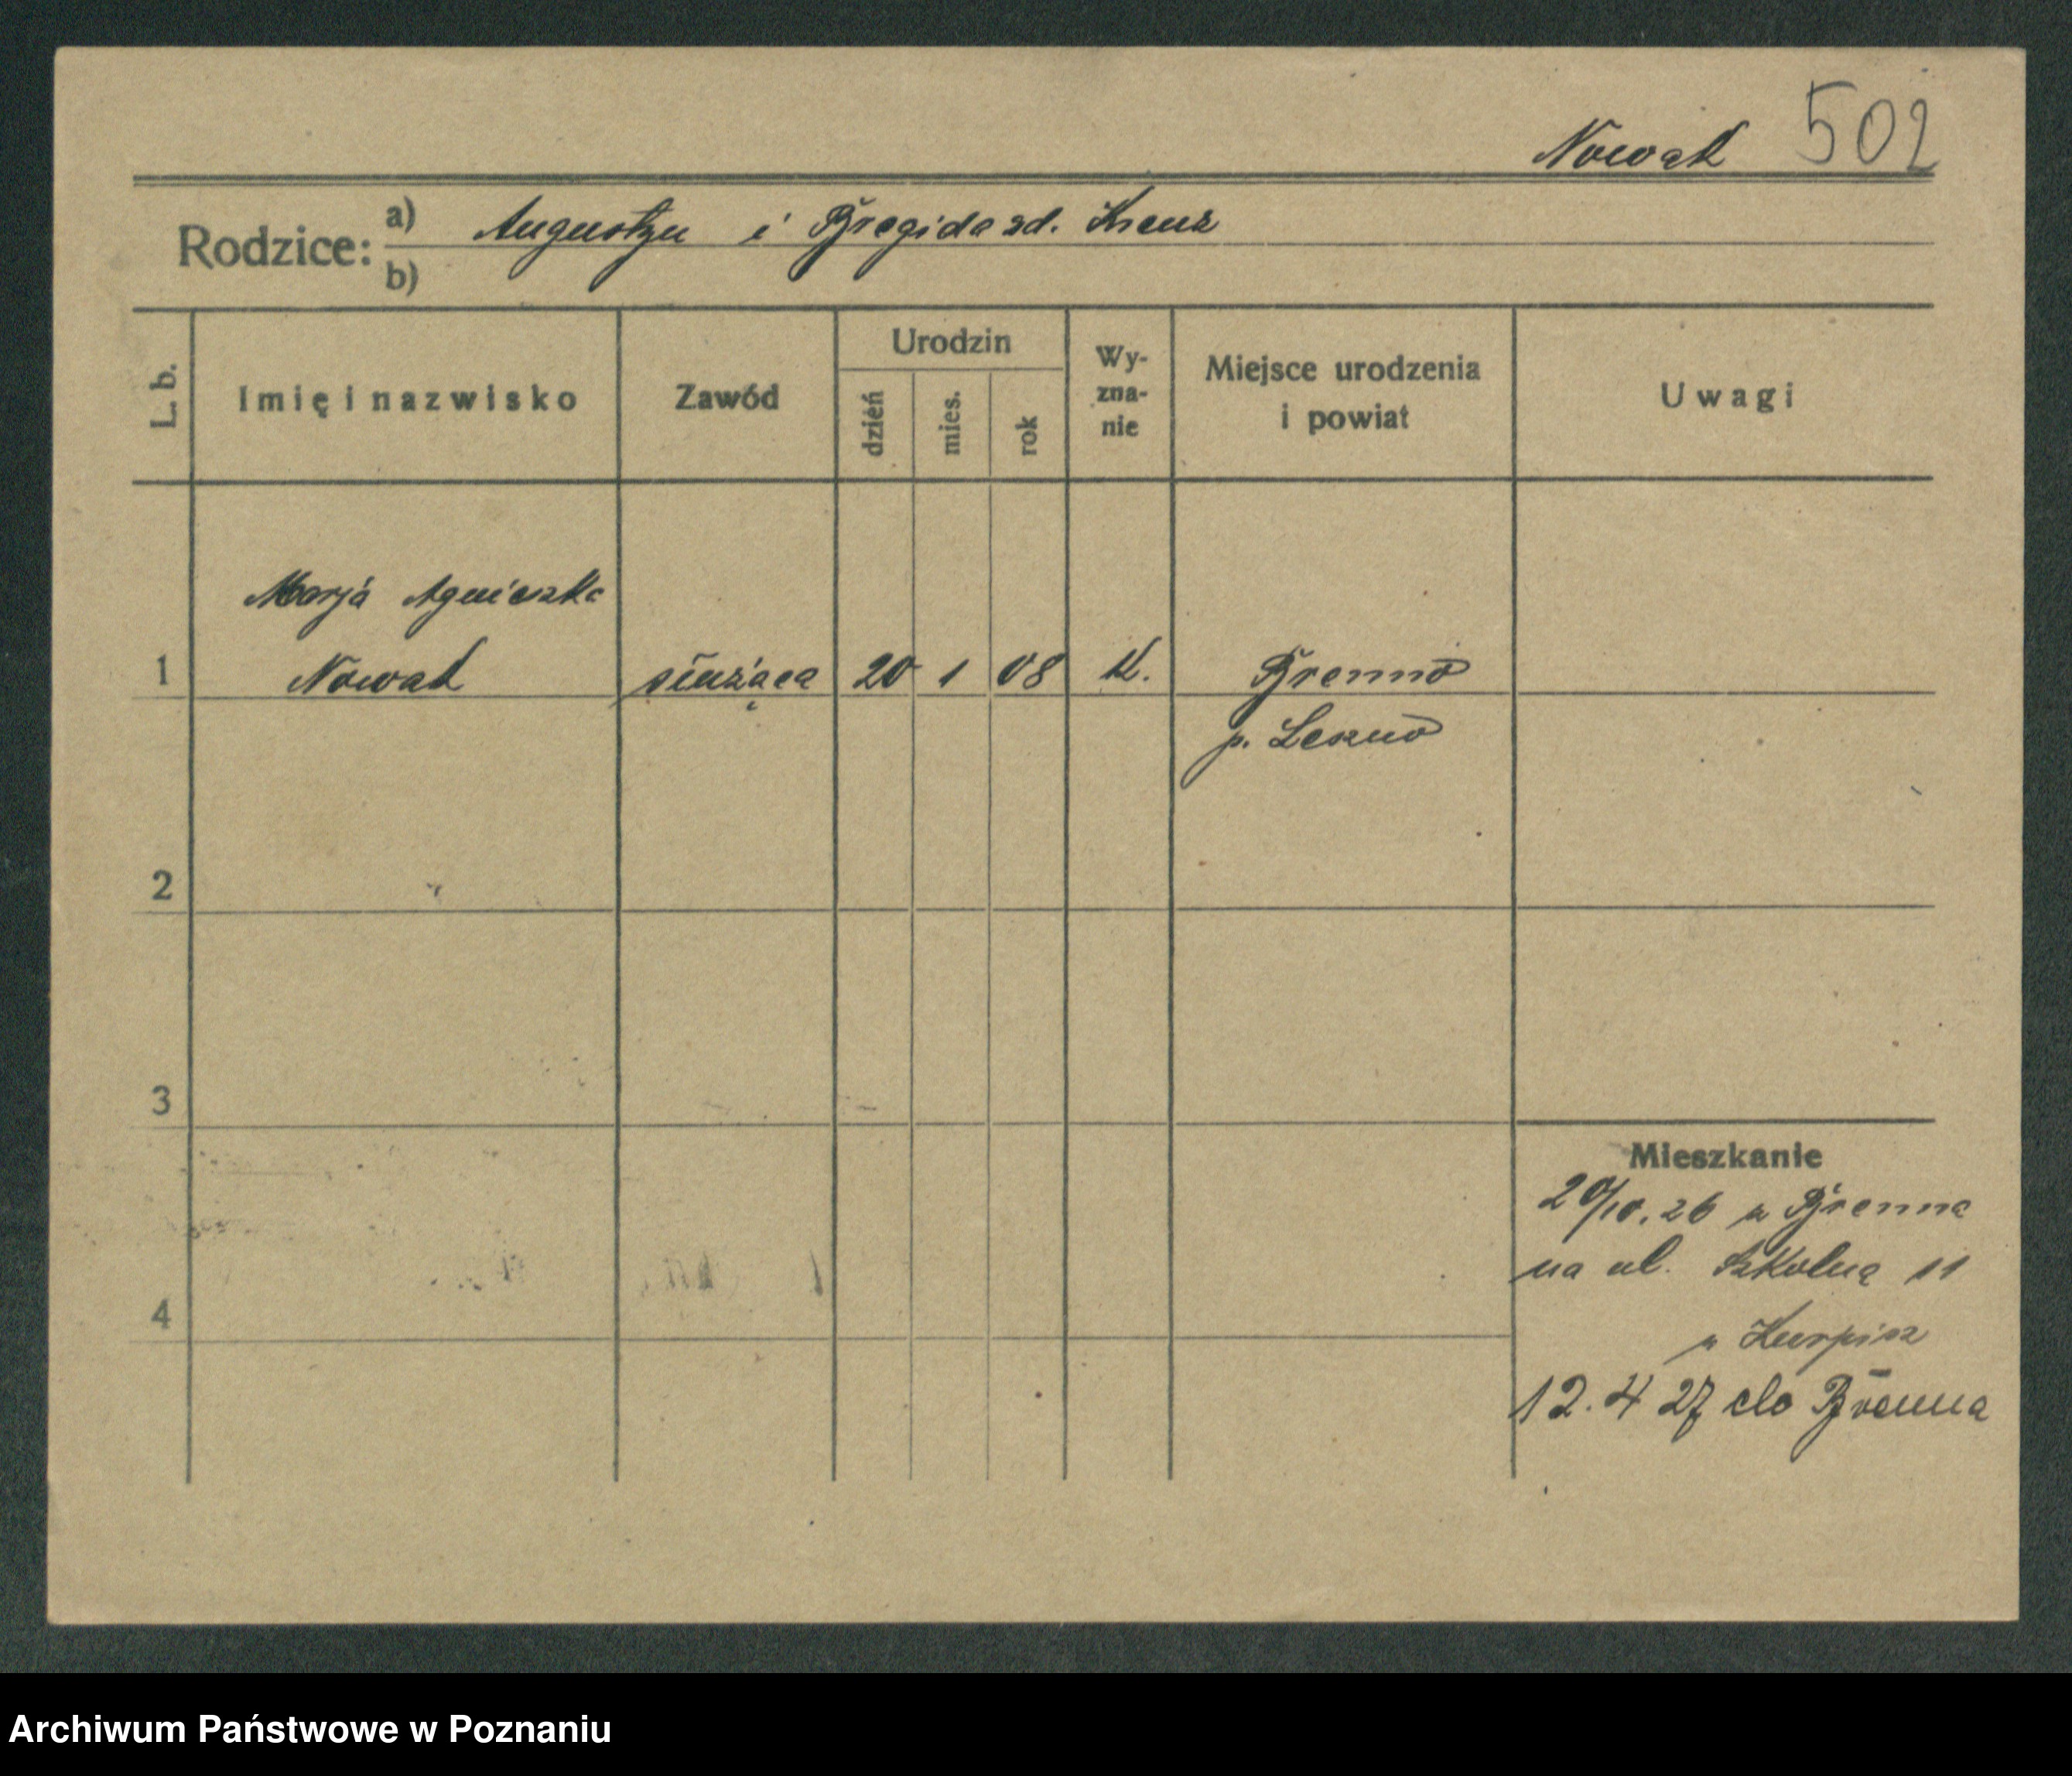 Nowak 502
Rodzice: a) Augustyn i Brygida zd. Kreuz
b)
L. b. Imię i nazwisko Zawód Urodzin dzień mies. rok Wy-zna-nie Miejsce urodzenia i powiat Uwagi
Marja Agnieszka
1 Nowak służąca 20 1 08 K. Brenno
p. Leszno
2
3
Mieszkanie
20/10.26 z Brenna
na ul. Szkolną 11
4
u Kurpisz
12.4 27 do Brenna
Archiwum Państwowe w Poznaniu